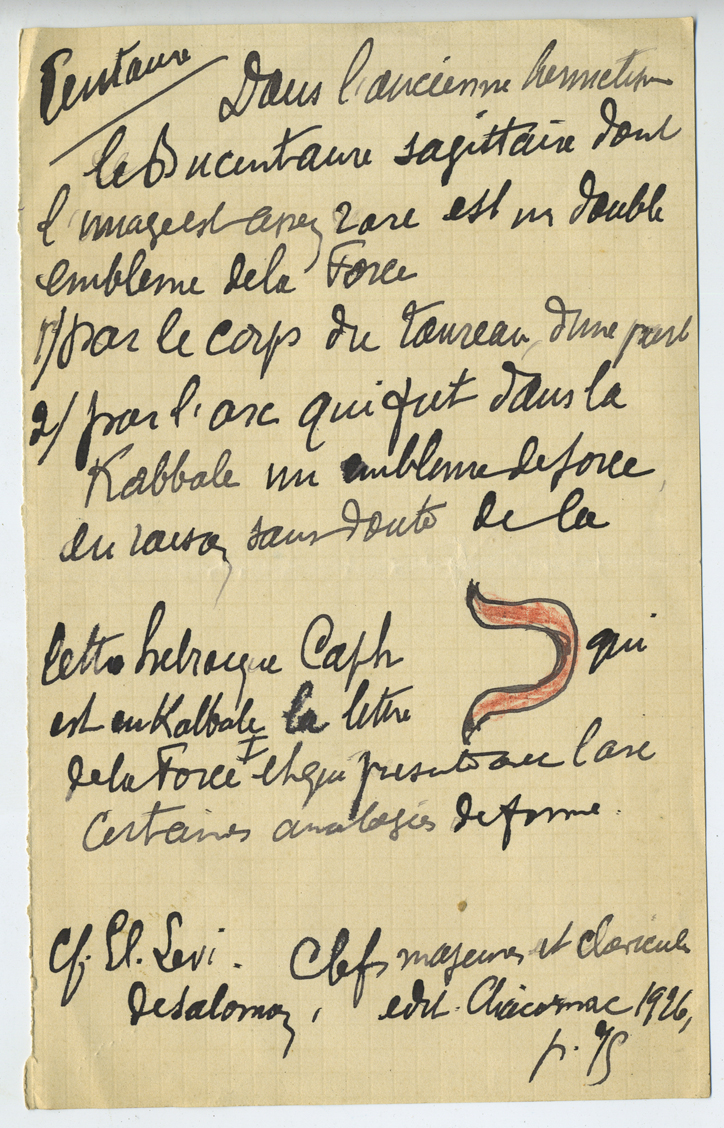 Centaure
Dans l'ancienne hermetisme
le Bucentaure sagittaire dont
l'image est assez rare est un double
embleme de la Force
1/ par le corps du taureau, d'une part
2/ par l'arc qui fut dans la
Kabbale un embleme de force,
en raison sans doute de la
lettre hebraique Caph כ qui
est en Kabbale la lettre
de la Force I et qui presente avec l'arc
certaines analogies de forme.
Cf. El. Levi. Clefs majeures et clavicules
de Salomon, edit. Chacornac 1926,
p. 75